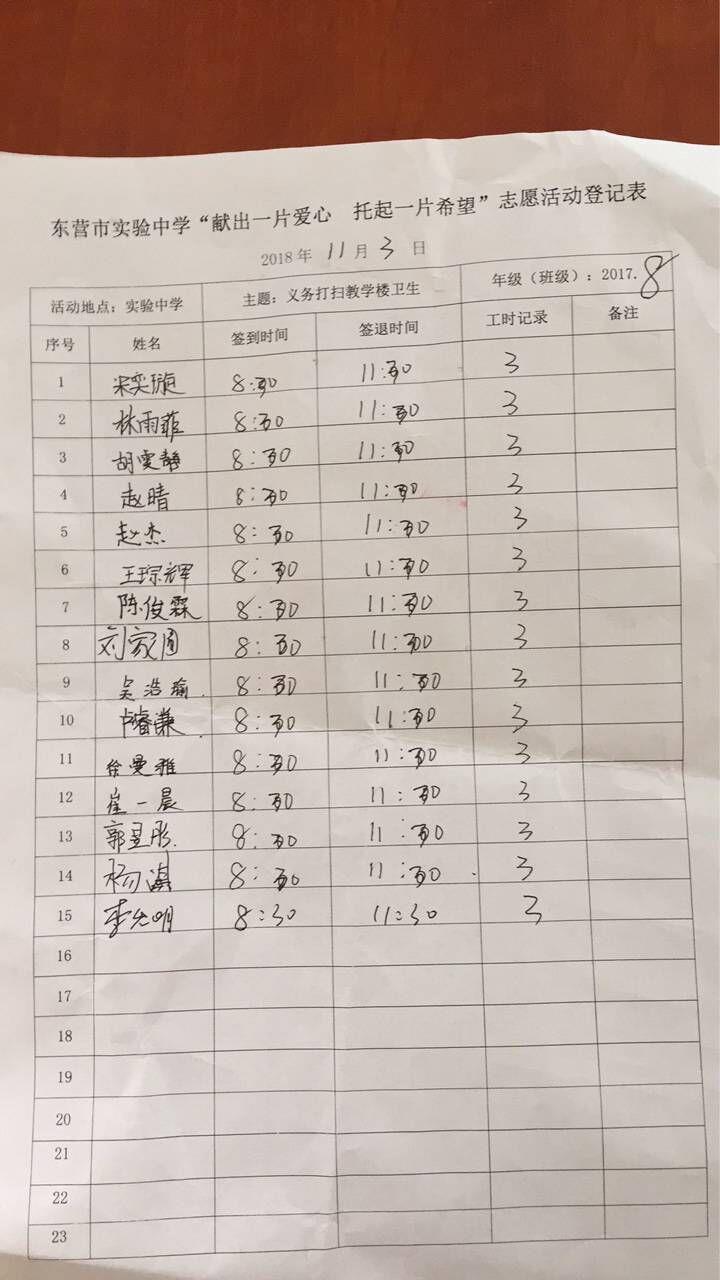 东营市实验中学“献出一片爱心 托起一片希望”志愿活动登记表
2018年 11 月 3 日
活动地点：实验中学 主题：义务打扫教学楼卫生 年级（班级）：2017.8
序号 姓名 签到时间 签退时间 工时记录 备注
1 宋奕璇 8:30 11:30 3
2 林雨菲 8:30 11:30 3
3 胡雯静 8:30 11:30 3
4 赵晴 8:30 11:30 3
5 赵杰 8:30 11:30 3
6 王琮辉 8:30 11:30 3
7 陈俊霖 8:30 11:30 3
8 刘家圆 8:30 11:30 3
9 吴浩瑜 8:30 11:30 3
10 卢睿谦 8:30 11:30 3
11 徐曼雅 8:30 11:30 3
12 崔一晨 8:30 11:30 3
13 郭昱彤 8:30 11:30 3
14 8:30 11:30 3
15 8:30 11:30 3
16
17
18
19
20
21
22
23